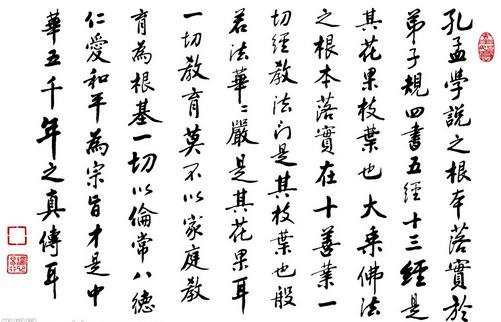 孔孟學說之根本落實於
弟子規四書五經十三經是
其花果枝葉也大乘佛法
之根本落實在十善業一
切經教法門是其枝葉也般
若法華華嚴是其花果耳
一切教育莫不以家庭教
育為根基一切以倫常八德
仁愛和平為宗旨才是中
華五千年之真傳耳